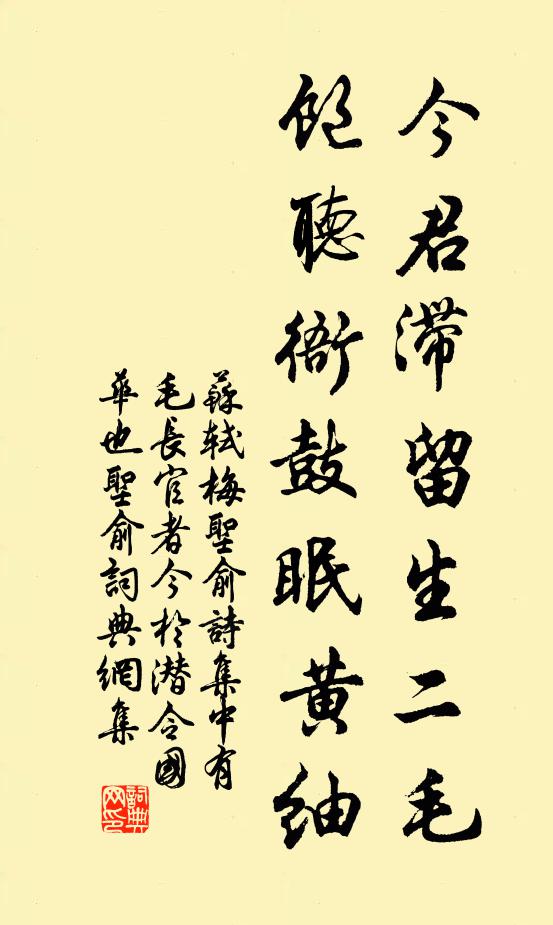 今君滞留生二毛
飽聽衙鼓眠黃紬
蘇軾梅聖俞詩集中有
毛長官者今於潛令國
華也聖俞詞典網集
詞典网印